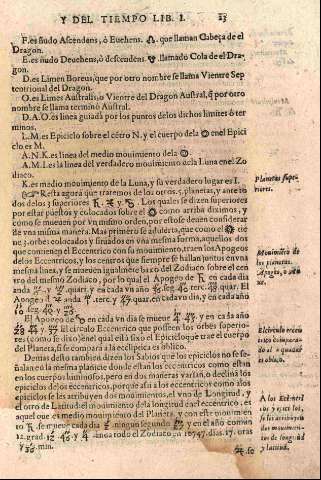 Y DEL TIEMPO LIB. I. 23
F. es ñudo Ascendens, ò Euehens. ☊. que llaman Cabeça de el
Dragon.
E. es ñudo Deuehens, ò descendens. ☋ llamado Cola de el Dra-
gon.
D. es Limen Boreus, que por otro nombre se llama Vientre Sep
tentrional del Dragon.
O. es Limes Australis, ò Vientre del Dragon Austral, q̃ por otro
nombre se llama termino Austral.
D. A. O. es linea guiada por los puntos delos dichos limites ò ter
minos.
L. M. es Epiciclo sobre el cẽtro N. y el cuerpo dela en el Epici
clo es M.
A. N. K. es linea del medio mouimiento dela
A. M. I. es la linea del verdadero mouimiento dela Luna en el Zo
diaco.
K. es medio mouimiento de la Luna, y su verdadero lugar es I.
Resta agora que tratemos de los otros 5. planetas, y ante to
dos delos 3. superiores ♄. ♃. y ♂. Los quales se dizen superiores
por estar puestos y colocados sobre el como arriba diximos, y
como se mueuen por vn mismo orden, por esto se deuen considerar
de vna misma manera. Mas primero se aduierta, que como el tie
ne 3. orbes colocados y situados en vna misma forma, aquellos dos
que conuienen el Eccentrico con su mouimiento, traen los Apogeos
de los Eccentricos, y los centros que siempre se hallan juntos en vna
misma linea, y se mueuen igualmete baxo del Zodiaco sobre el cen
tro del mesmo Zodiaco, por lo qual el Apogeo de ♄ en cada dia
anda terc. y quart. y en cada vn año seg. terc. quar. El
Apogeo de ♃ anda terc. y quar. en cada vn dia, y en cada año
seg. y
El Apogeo de ♂ en cada vn dia se mueue y en cada año
El circulo Eccentrico que posseen los orbes superio-
res (como se dixo) en el qual està fixo el Epiciclo que trae el cuerpo
del Planeta, si se compara à la ecliptica es oblico.
Demas desto tambien dizen los Sabios que los epiciclos no se se-
ñalan en la mesma planicie donde estan los eccentricos como estan
en los cuerpos luminosos, pero en dos maneras varian, ò declina los
epiciclos de los eccentricos, porque assi a los eccentricos como a los
epiciclos se les atribuyen dos mouimientos, el vno de Longitud, y
el otro de Latitud el mouimiento dela longitud en el eccentrico, es
aquel que es medio mouimiento del Planeta, y con este mouimien
to ♄ se mueue cada dia ninguno segundo y en el año comun
12. grad. y anda todo el Zodiaco en 10747. dias. 17. oras
y min. ♃. se
Planetas supe-
riores.
Mouimiẽto de
los primeros.
Apogeo, o Au
ge.
El circulo ecce
trico comparado
al a quadrãt
es oblico.
A los Eccẽtri
cos y epiciclos,
se les atribuyẽ
dos mouimien-
tos de longitud
y latitud.